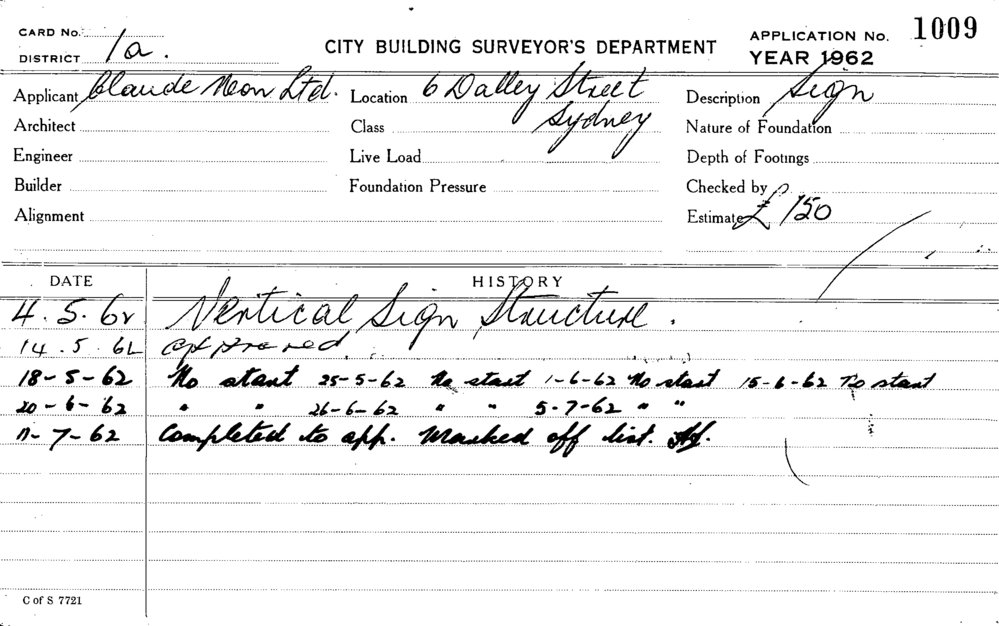 CARD No.
DISTRICT 1a.
CITY BUILDING SURVEYOR'S DEPARTMENT
APPLICATION No. 1009
YEAR 1962
Applicant Claude Neon Ltd. Location 6 Dalley Street Description Sign
Architect Class Sydney Nature of Foundation
Engineer Live Load Depth of Footings
Builder Foundation Pressure Checked by
Alignment Estimate £ 150
DATE HISTORY
4.5.62 Vertical Sign Structure.
14.5.62 approved
18-5-62 No start 25-5-62 No start 1-6-62 No start 15-6-62 To start
20-6-62 " " 26-6-62 " " 5-7-62 " "
11-7-62 Completed to app. Marked off list.
C of S 7721